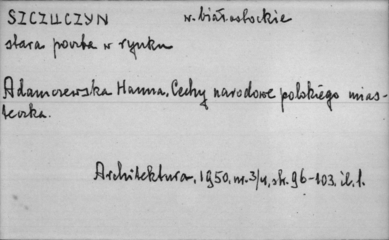 SZCZUCZYN w. białostockie
stara poczta w rynku
Adamczewska Hanna, Cechy narodowe polskiego mias-
teczka.
Architektura, 1950, nr. 3/4, str. 96-103, il. 1.